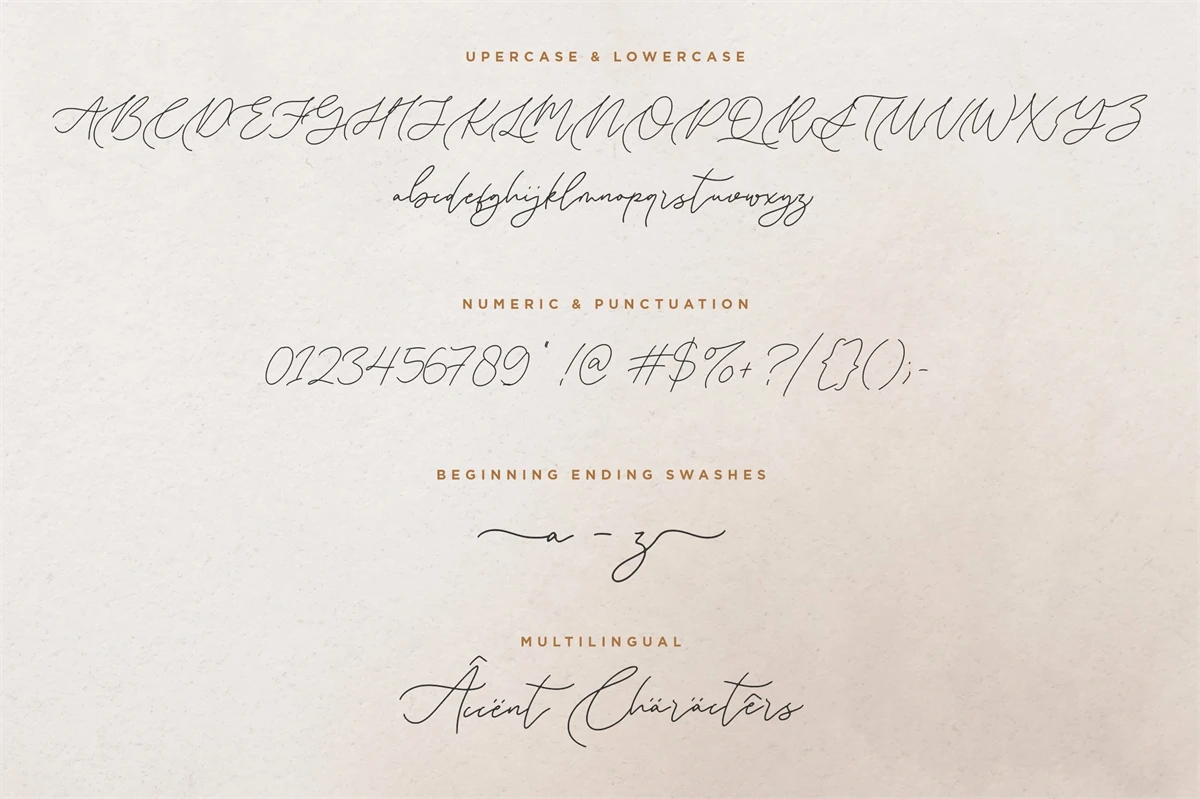 UPERCASE & LOWERCASE
ABCDEFGHIJKLMNOPQRSTUVWXYZ
abcdefghijklmnopqrstuvwxyz
NUMERIC & PUNCTUATION
0123456789' !@ #$%+?/{}();-
BEGINNING ENDING SWASHES
a - z
MULTILINGUAL
Âccënt Chäräctêrs